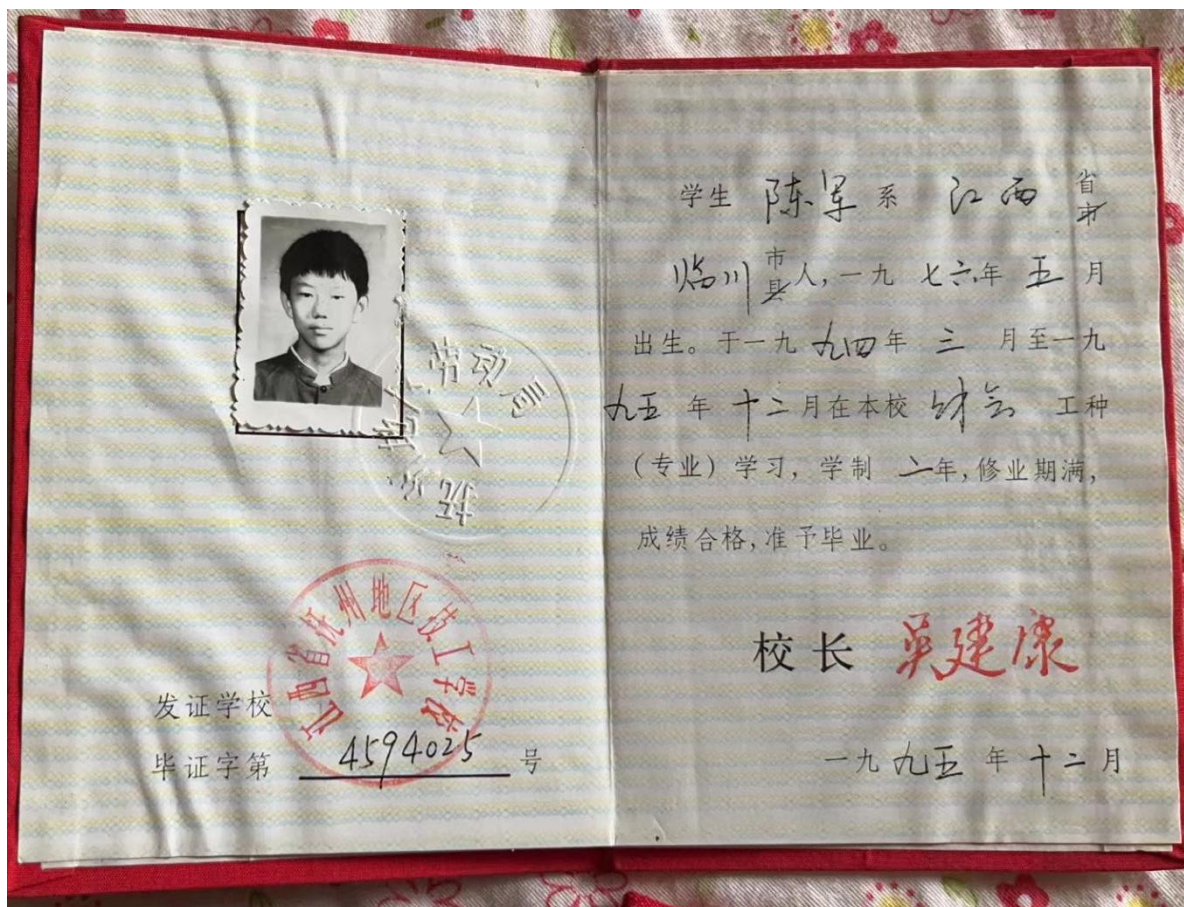 抚州
劳动局
江西省抚州地区技工学校
发证学校
毕证字第 4594025 号
学生 陈军 系 江西 省市
临川 市县人,一九七六年 五 月
出生。于一九九四年 三 月至一九
九五 年 十二月在本校 财会 工种
(专业)学习,学制 二年,修业期满,
成绩合格,准予毕业。
校长 吴建康
一九九五 年 十二月